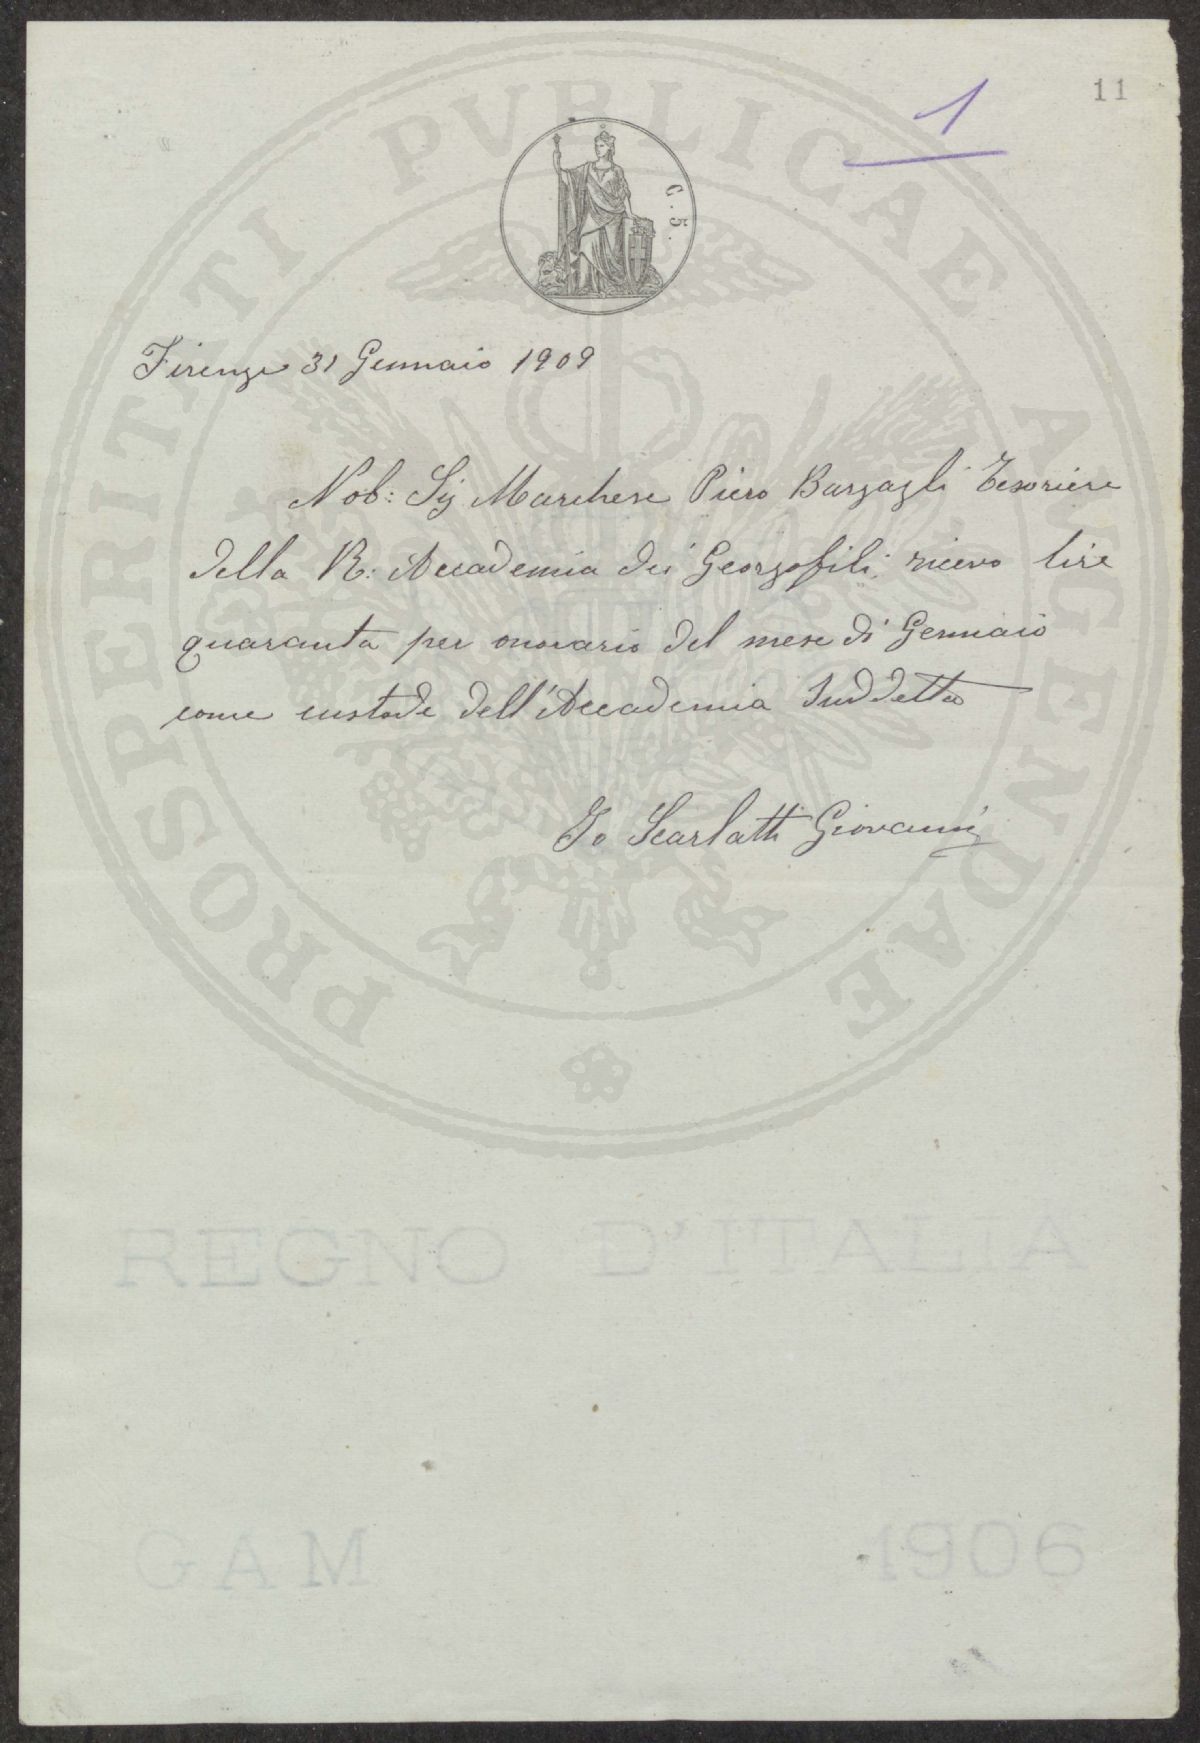 11
1
C. 5.
Firenze 31 Gennaio 1909
Nob: Sig Marchese Piero Bargagli Tesoriere
della R: Accademia dei Georgofili, ricevo lire
quaranta per onorario del mese di Gennaio
come custode dell'Accademia Suddetta
Io Scarlatti Giovanni
PROSPERITATI PVBLICAE AVGENDAE
REGNO D'ITALIA
GAM 1906